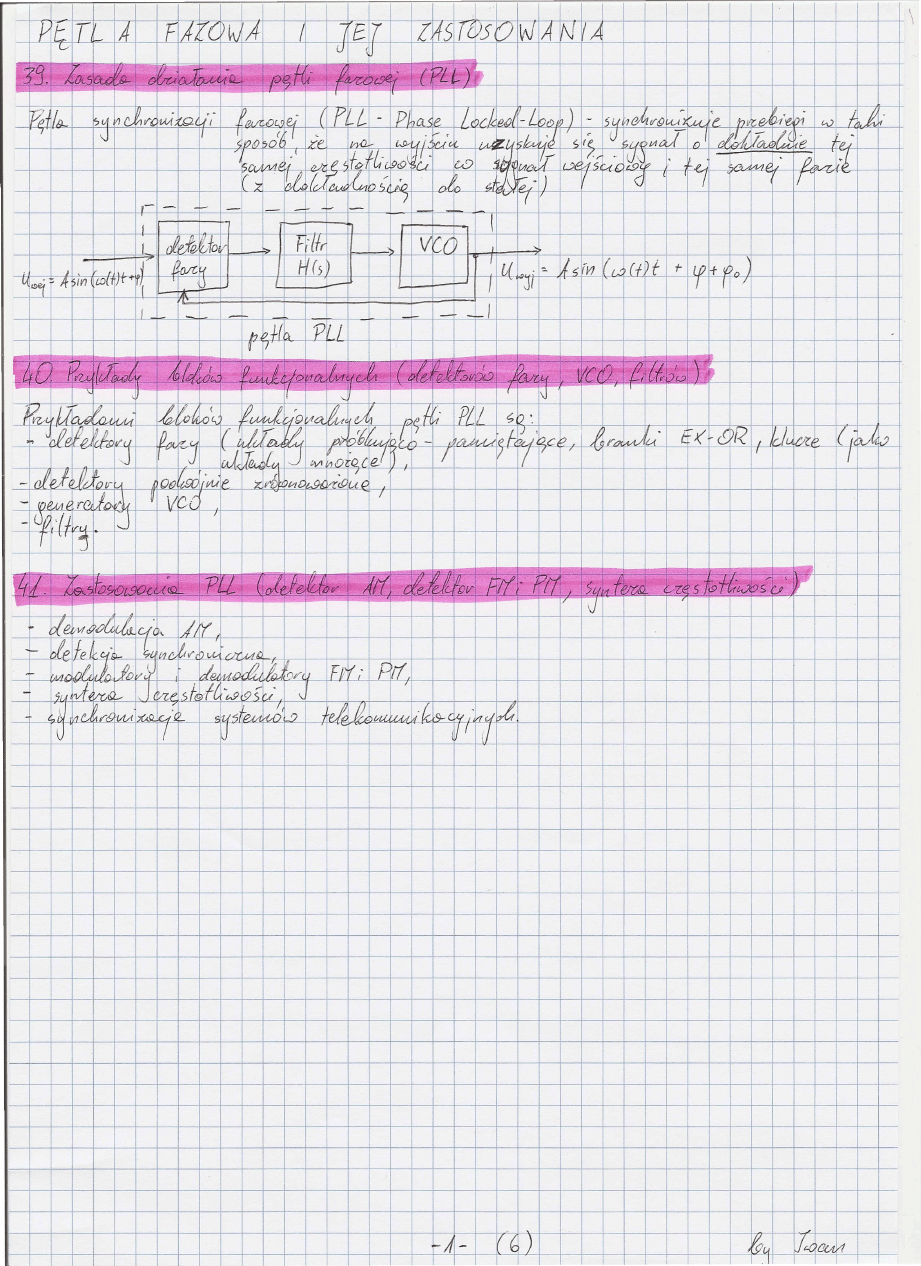 PĘTLA FAZOWA I JEJ ZASTOSOWANIA
39. Zasada działania pętli fazowej (PLL)
Pętla synchronizacji fazowej (PLL - Phase Locked-Loop) - synchronizuje przebiegi w taki
sposób, że na wyjściu uzyskuje się sygnał o dokładnie tej
samej częstotliwości co sygnał wejściowy i tej samej fazie
(z dokładnością do stałej)
detektor fazy
Filtr H(s)
VCO
Uwej = A sin(ω(t)t+φ)
Uwyj = A sin(ω(t)t + φ+φ₀)
pętla PLL
40. Przykłady bloków funkcjonalnych (detektorów fazy, VCO, filtrów)
Przykładami bloków funkcjonalnych pętli PLL są:
- detektory fazy (układy próbkująco-pamiętające, bramki EX-OR, klucze (jako
układy mnożące),
- detektory podwójnie zrównoważone,
- generatory VCO,
- filtry.
41. Zastosowania PLL (detektor AM, detektor FM i PM, synteza częstotliwości)
- demodulacja AM,
- detekcja synchroniczna,
- modulatory i demodulatory FM i PM,
- synteza częstotliwości,
- synchronizacja systemów telekomunikacyjnych.
-1- (6)
by Iwan